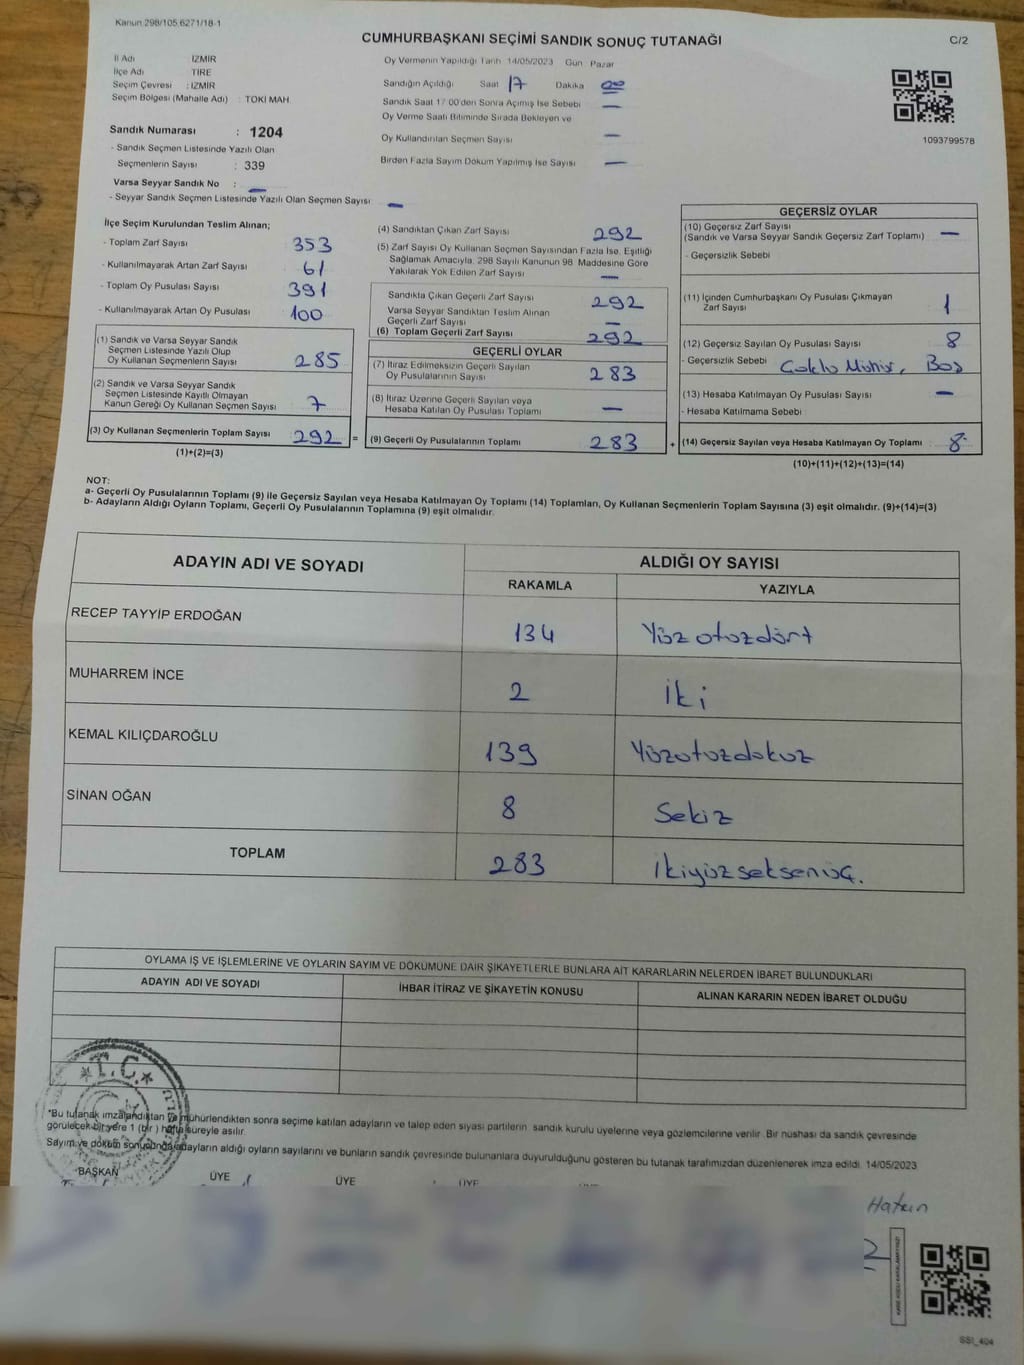 Kanun 298/105.6271/18-1
CUMHURBAŞKANI SEÇİMİ SANDIK SONUÇ TUTANAĞI
C/2
İl Adı : İZMİR
İlçe Adı : TİRE
Seçim Çevresi : İZMİR
Seçim Bölgesi (Mahalle Adı) : TOKİ MAH.
Sandık Numarası : 1204
- Sandık Seçmen Listesinde Yazılı Olan
Seçmenlerin Sayısı : 339
Varsa Seyyar Sandık No : —
- Seyyar Sandık Seçmen Listesinde Yazılı Olan Seçmen Sayısı —
Oy Vermenin Yapıldığı Tarih 14/05/2023 Gün Pazar
Sandığın Açıldığı Saat 17 Dakika 00
Sandık Saat 17:00'den Sonra Açılmış İse Sebebi —
Oy Verme Saati Bitiminde Sırada Bekleyen ve
Oy Kullandırılan Seçmen Sayısı —
Birden Fazla Sayım Döküm Yapılmış İse Sayısı —
1093799578
İlçe Seçim Kurulundan Teslim Alınan;
- Toplam Zarf Sayısı 353
- Kullanılmayarak Artan Zarf Sayısı 61
- Toplam Oy Pusulası Sayısı 391
- Kullanılmayarak Artan Oy Pusulası 100
(1) Sandık ve Varsa Seyyar Sandık
Seçmen Listesinde Yazılı Olup
Oy Kullanan Seçmenlerin Sayısı 285
(2) Sandık ve Varsa Seyyar Sandık
Seçmen Listesinde Kayıtlı Olmayan
Kanun Gereği Oy Kullanan Seçmen Sayısı 7
(3) Oy Kullanan Seçmenlerin Toplam Sayısı 292 =
(1)+(2)=(3)
(4) Sandıktan Çıkan Zarf Sayısı 292
(5) Zarf Sayısı Oy Kullanan Seçmen Sayısından Fazla İse, Eşitliği
Sağlamak Amacıyla, 298 Sayılı Kanunun 98. Maddesine Göre
Yakılarak Yok Edilen Zarf Sayısı —
Sandıkta Çıkan Geçerli Zarf Sayısı 292
Varsa Seyyar Sandıktan Teslim Alınan
Geçerli Zarf Sayısı —
(6) Toplam Geçerli Zarf Sayısı 292
GEÇERLİ OYLAR
(7) İtiraz Edilmeksizin Geçerli Sayılan
Oy Pusulalarının Sayısı 283
(8) İtiraz Üzerine Geçerli Sayılan veya
Hesaba Katılan Oy Pusulası Toplamı —
(9) Geçerli Oy Pusulalarının Toplamı 283 +
GEÇERSİZ OYLAR
(10) Geçersiz Zarf Sayısı
(Sandık ve Varsa Seyyar Sandık Geçersiz Zarf Toplamı) —
- Geçersizlik Sebebi
(11) İçinden Cumhurbaşkanı Oy Pusulası Çıkmayan
Zarf Sayısı 1
(12) Geçersiz Sayılan Oy Pusulası Sayısı 8
- Geçersizlik Sebebi Çoklu Mühür, Boş
(13) Hesaba Katılmayan Oy Pusulası Sayısı —
- Hesaba Katılmama Sebebi
(14) Geçersiz Sayılan veya Hesaba Katılmayan Oy Toplamı : 8
(10)+(11)+(12)+(13)=(14)
NOT:
a- Geçerli Oy Pusulalarının Toplamı (9) ile Geçersiz Sayılan veya Hesaba Katılmayan Oy Toplamı (14) Toplamları, Oy Kullanan Seçmenlerin Toplam Sayısına (3) eşit olmalıdır. (9)+(14)=(3)
b- Adayların Aldığı Oyların Toplamı, Geçerli Oy Pusulalarının Toplamına (9) eşit olmalıdır.
ADAYIN ADI VE SOYADI ALDIĞI OY SAYISI
RAKAMLA YAZIYLA
RECEP TAYYİP ERDOĞAN 134 Yüzotuzdört
MUHARREM İNCE 2 İki
KEMAL KILIÇDAROĞLU 139 Yüzotuzdokuz
SİNAN OĞAN 8 Sekiz
TOPLAM 283 İkiyüzseksenüç.
OYLAMA İŞ VE İŞLEMLERİNE VE OYLARIN SAYIM VE DÖKÜMÜNE DAİR ŞİKAYETLERLE BUNLARA AİT KARARLARIN NELERDEN İBARET BULUNDUKLARI
ADAYIN ADI VE SOYADI İHBAR İTİRAZ VE ŞİKAYETİN KONUSU ALINAN KARARIN NEDEN İBARET OLDUĞU
T.C.
"Bu tutanak imzalandıktan ve mühürlendikten sonra seçime katılan adayların ve talep eden siyasi partilerin sandık kurulu üyelerine veya gözlemcilerine verilir. Bir nüshası da sandık çevresinde
görülecek bir yere 1 (bir) hafta süreyle asılır.
Sayım ve döküm sonucunda adayların aldığı oyların sayılarını ve bunların sandık çevresinde bulunanlara duyurulduğunu gösteren bu tutanak tarafımızdan düzenlenerek imza edildi. 14/05/2023
BAŞKAN ÜYE ÜYE ÜYE
SSI_404